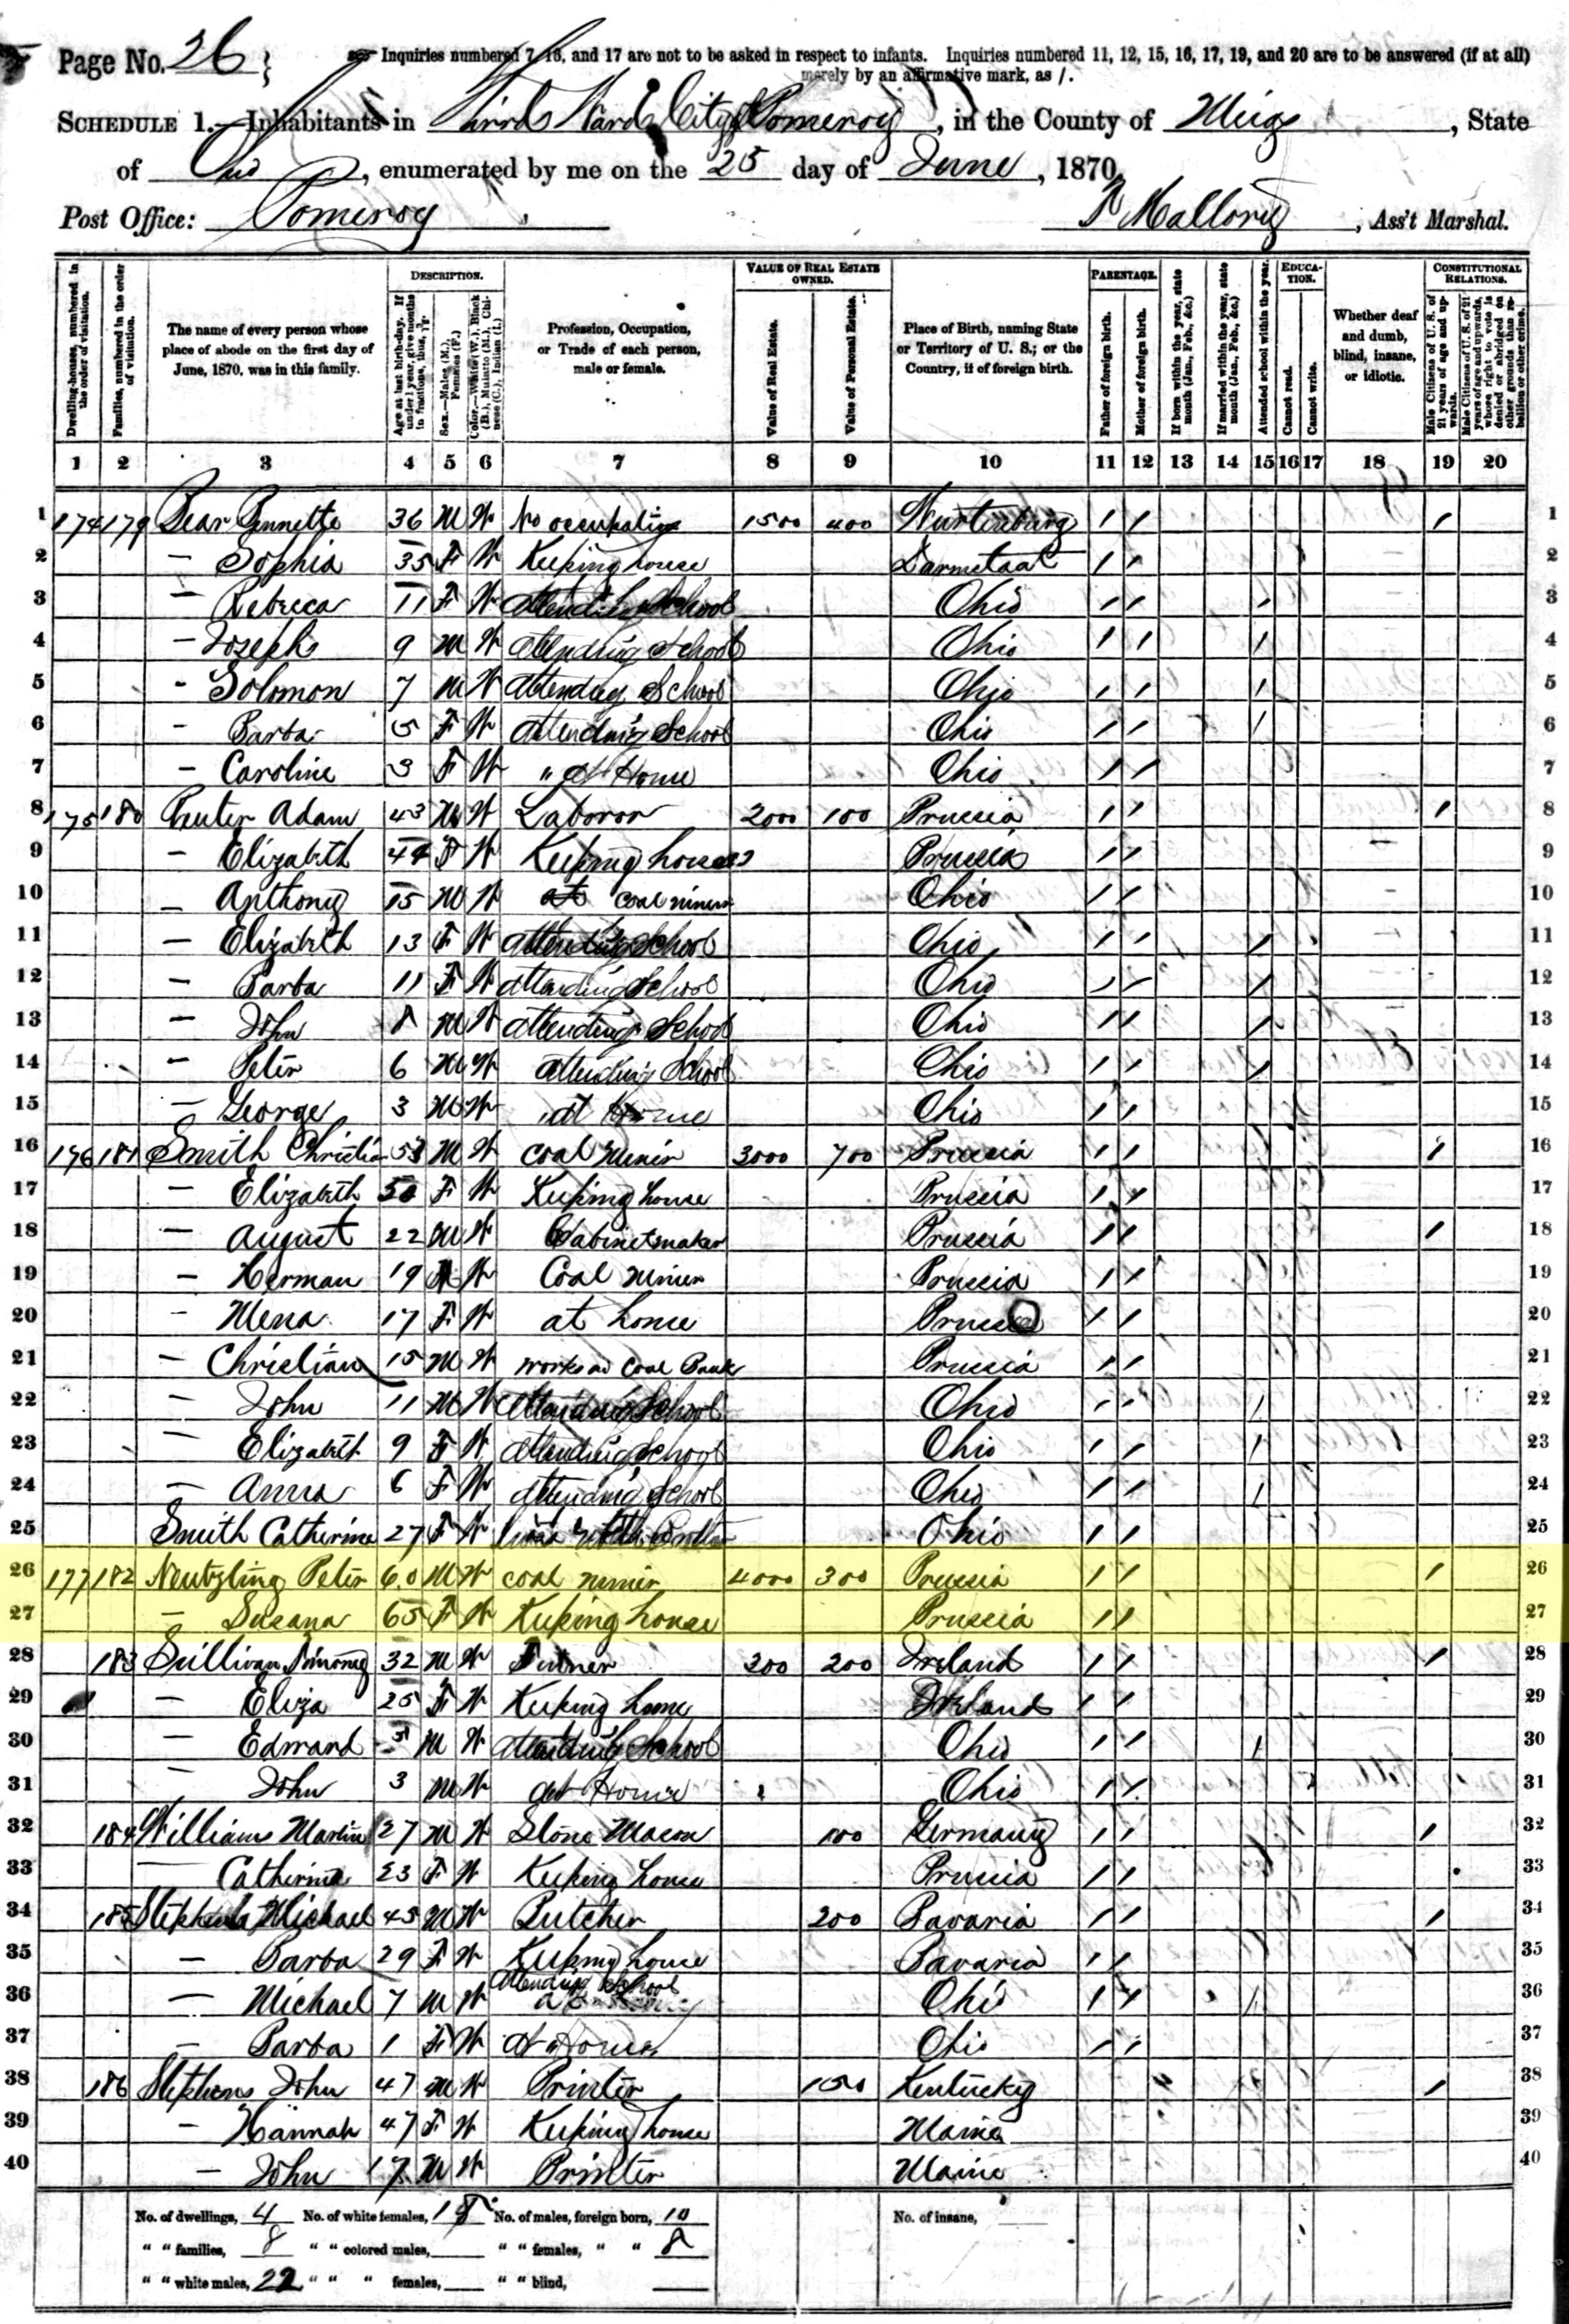 Page No. 26
Inquiries numbered 7, 16, and 17 are not to be asked in respect to infants. Inquiries numbered 11, 12, 15, 16, 17, 19, and 20 are to be answered (if at all)
merely by an affirmative mark, as /.
SCHEDULE 1.—Inhabitants in Third Ward City of Pomeroy, in the County of Meigs, State
of Ohio, enumerated by me on the 25 day of June, 1870.
Post Office: Pomeroy Mallory, Ass't Marshal.
Dwelling-houses, numbered in the order of visitation.
Families, numbered in the order of visitation.
The name of every person whose place of abode on the first day of June, 1870, was in this family.
DESCRIPTION.
Age at last birth-day. If under 1 year, give months in fractions, thus,
Sex.—Males (M.), Females (F.)
Color.—White (W.), Black (B.), Mulatto (M.), Chinese (C.), Indian (I.)
Profession, Occupation, or Trade of each person, male or female.
VALUE OF REAL ESTATE OWNED.
Value of Real Estate.
Value of Personal Estate.
Place of Birth, naming State or Territory of U. S.; or the Country, if of foreign birth.
PARENTAGE.
Father of foreign birth.
Mother of foreign birth.
If born within the year, state month (Jan., Feb., &c.)
If married within the year, state month (Jan., Feb., &c.)
Attended school within the year.
EDUCATION.
Cannot read.
Cannot write.
Whether deaf and dumb, blind, insane, or idiotic.
CONSTITUTIONAL RELATIONS.
Male Citizens of U. S. of 21 years of age and upwards.
Male Citizens of U. S. of 21 years of age and upwards, whose right to vote is denied or abridged on other grounds than rebellion or other crime.
1 2 3 4 5 6 7 8 9 10 11 12 13 14 15 16 17 18 19 20
1 174 179 Bear 36 M W No occupation 1500 400 Wurtemburg / / / 1
2 — Sophia 35 F W Keeping house Darmstaat / / 2
3 — Rebeca 11 F W Attending School Ohio / / / 3
4 — Joseph 9 M W Attending School Ohio / / / 4
5 - Solomon 7 M W Attending School Ohio / / / 5
6 - Barba 5 F W Attending School Ohio / / / 6
7 - Caroline 3 F W " at Home Ohio / / 7
8 175 180 Adam 43 M W Laboror 2000 100 Prussia / / / 8
9 - Elizabeth 44 F W Keeping house Prussia / / 9
10 — Anthony 15 M W at Coal miner Ohio / / 10
11 — Elizabeth 13 F W attending School Ohio / / / 11
12 — Barba 11 F W attending School Ohio / / / 12
13 — John 8 M W attending School Ohio / / / 13
14 — Peter 6 M W attending School Ohio / / / 14
15 — George 3 M W at Home Ohio / / 15
16 176 181 Smith Christian 53 M W Coal miner 3000 700 Prussia / / / 16
17 — Elizabeth 50 F W Keeping house Prussia / / 17
18 — August 22 M W Cabinetmaker Prussia / / / 18
19 — Herman 19 M W Coal miner Prussia / / 19
20 — Mena 17 F W at home Prussia / / 20
21 — Christian 15 M W works in Coal Bank Prussia / / 21
22 — John 11 M W Attending School Ohio / / / 22
23 - Elizabeth 9 F W attending School Ohio / / / 23
24 — Anna 6 F W attending School Ohio / / / 24
25 Smith Catherine 27 F W Ohio / / 25
26 177 182 Neutzling Peter 60 M W coal miner 4000 300 Prussia / / / 26
27 — Susana 65 F W Keeping house Prussia / / 27
28 183 Sullivan 32 M W 200 200 Ireland / / / 28
29 — Eliza 25 F W Keeping home Ireland / / 29
30 — Edward 5 M W attending School Ohio / / / 30
31 — John 3 M W at Home Ohio / / 31
32 184 Williams Martin 27 M W Stone Mason 100 Germany / / / 32
33 — Catherine 23 F W Keeping house Prussia / / 33
34 185 Stephens Michael 45 M W Butcher 200 Bavaria / / / 34
35 — Barba 29 F W Keeping house Bavaria / / 35
36 — Michael 7 M W Attending School Ohio / / / 36
37 — Barba 1 F W At Home Ohio / / 37
38 186 Stephens John 47 M W Printer 150 Kentucky / 38
39 - Hannah 47 F W Keeping house Maine 39
40 — John 17 M W Printer Maine 40
No. of dwellings, 4 No. of white females, 18 No. of males, foreign born, 10 No. of insane,
" " families, 8 " " colored males, " " females, " " 8
" " white males, 22 " " " females, " " blind,